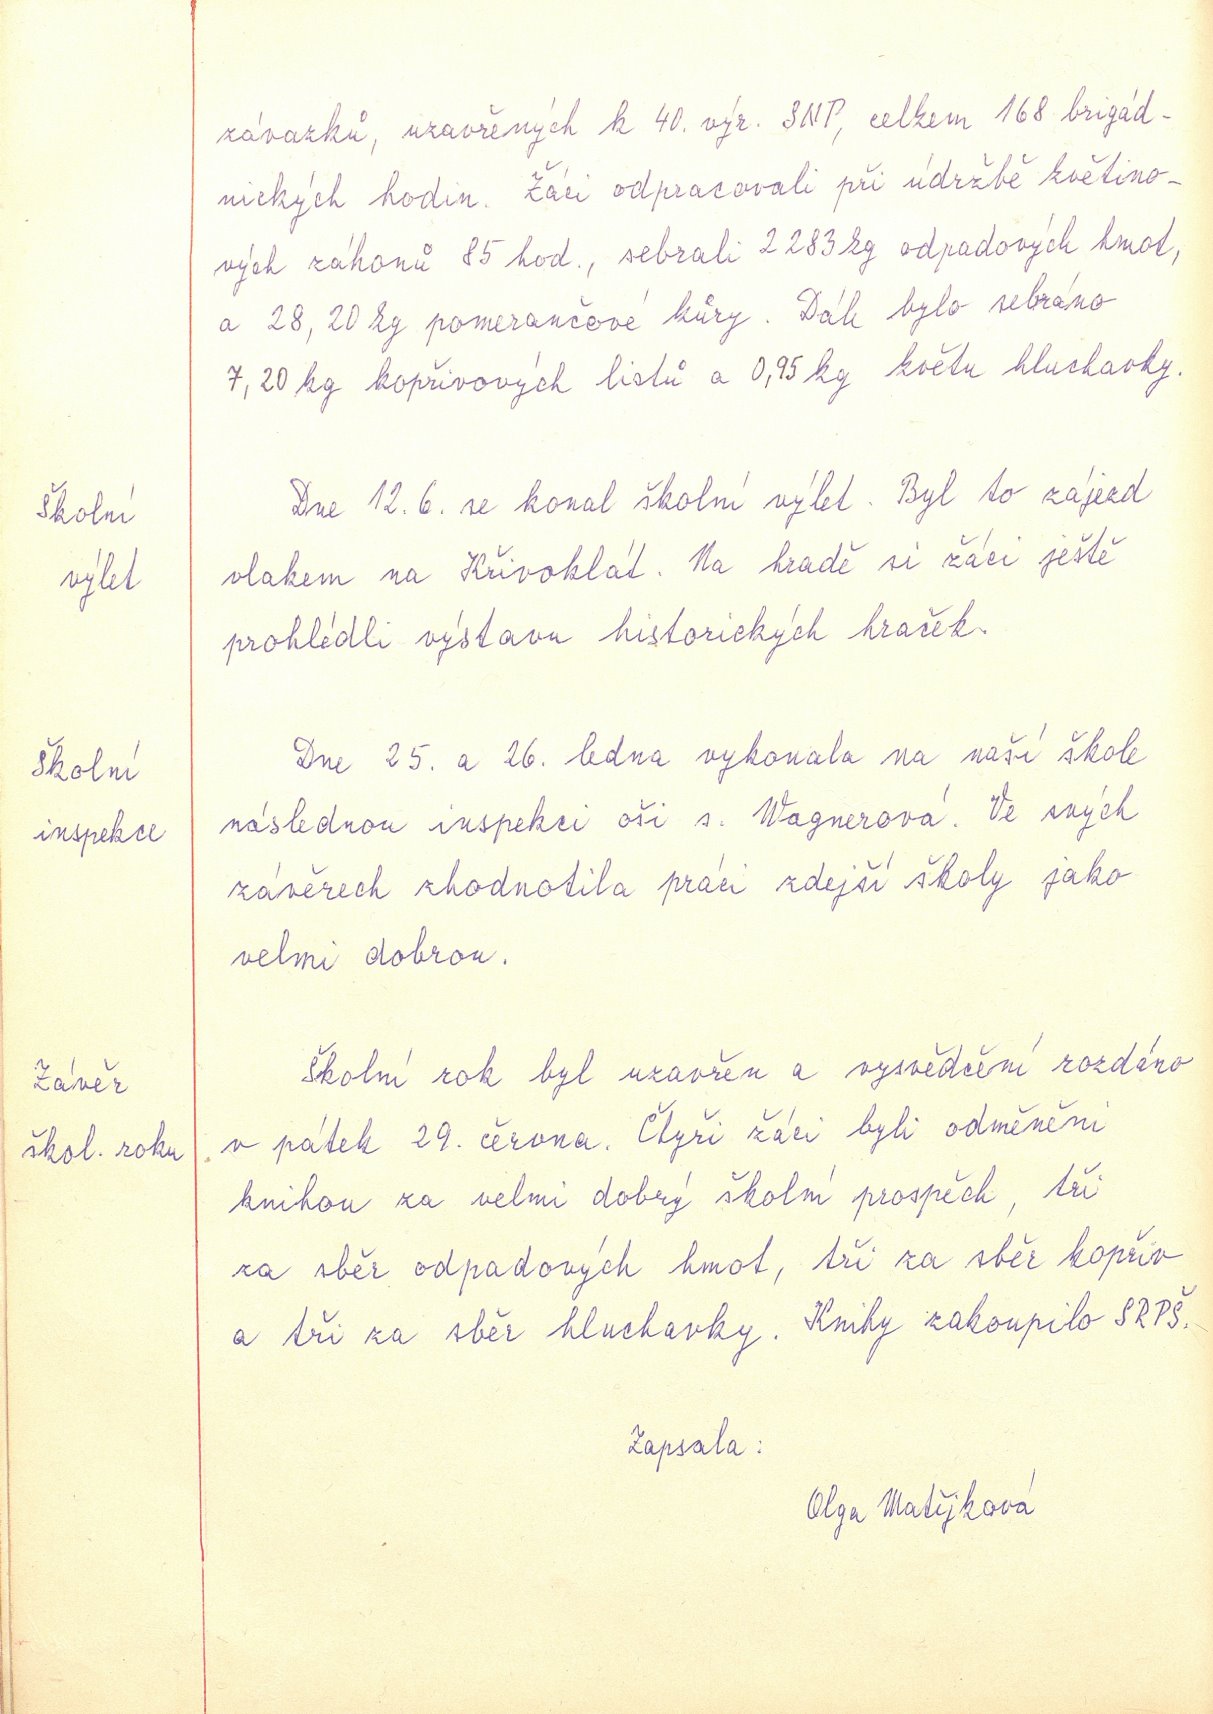 závazků, uzavřených k 40. výr. SNP, celkem 168 brigád-
nických hodin. Žáci odpracovali při údržbě květino-
vých záhonů 85 hod., sebrali 2 283 kg odpadových hmot,
a 28,20 kg pomerančové kůry. Dále bylo sebráno
7,20 kg kopřivových listů a 0,95 kg květu hluchavky.
Školní
výlet
Dne 12. 6. se konal školní výlet. Byl to zájezd
vlakem na Křivoklát. Na hradě si žáci ještě
prohlédli výstavu historických hraček.
Školní
inspekce
Dne 25. a 26. ledna vykonala na naší škole
následnou inspekci oši s. Wagnerová. Ve svých
závěrech zhodnotila práci zdejší školy jako
velmi dobrou.
Závěr
škol. roku
Školní rok byl uzavřen a vysvědčení rozdáno
v pátek 29. června. Čtyři žáci byli odměněni
knihou za velmi dobrý školní prospěch, tři
za sběr odpadových hmot, tři za sběr kopřiv
a tři za sběr hluchavky. Knihy zakoupilo SRPŠ.
Zapsala:
Olga Matějková